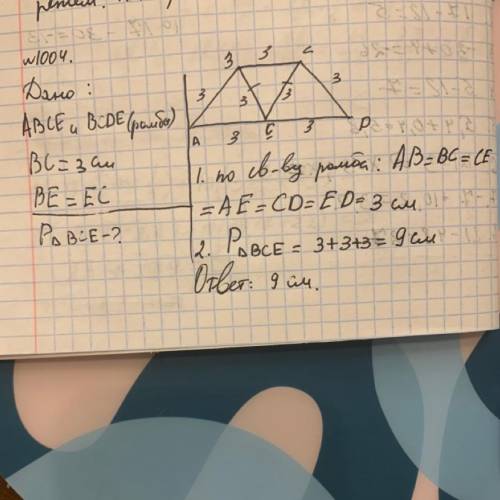 решен.
№1004.
Дано:
ABCE и BCDE (ромбы)
BC = 3 см
BE = EC
P△BCE - ?
3 3 C
3 3 3 3
A 3 E 3 D
1. по св-ву ромба: AB = BC = CE
= AE = CD = ED = 3 см
2. P△BCE = 3+3+3 = 9 см
Ответ: 9 см.